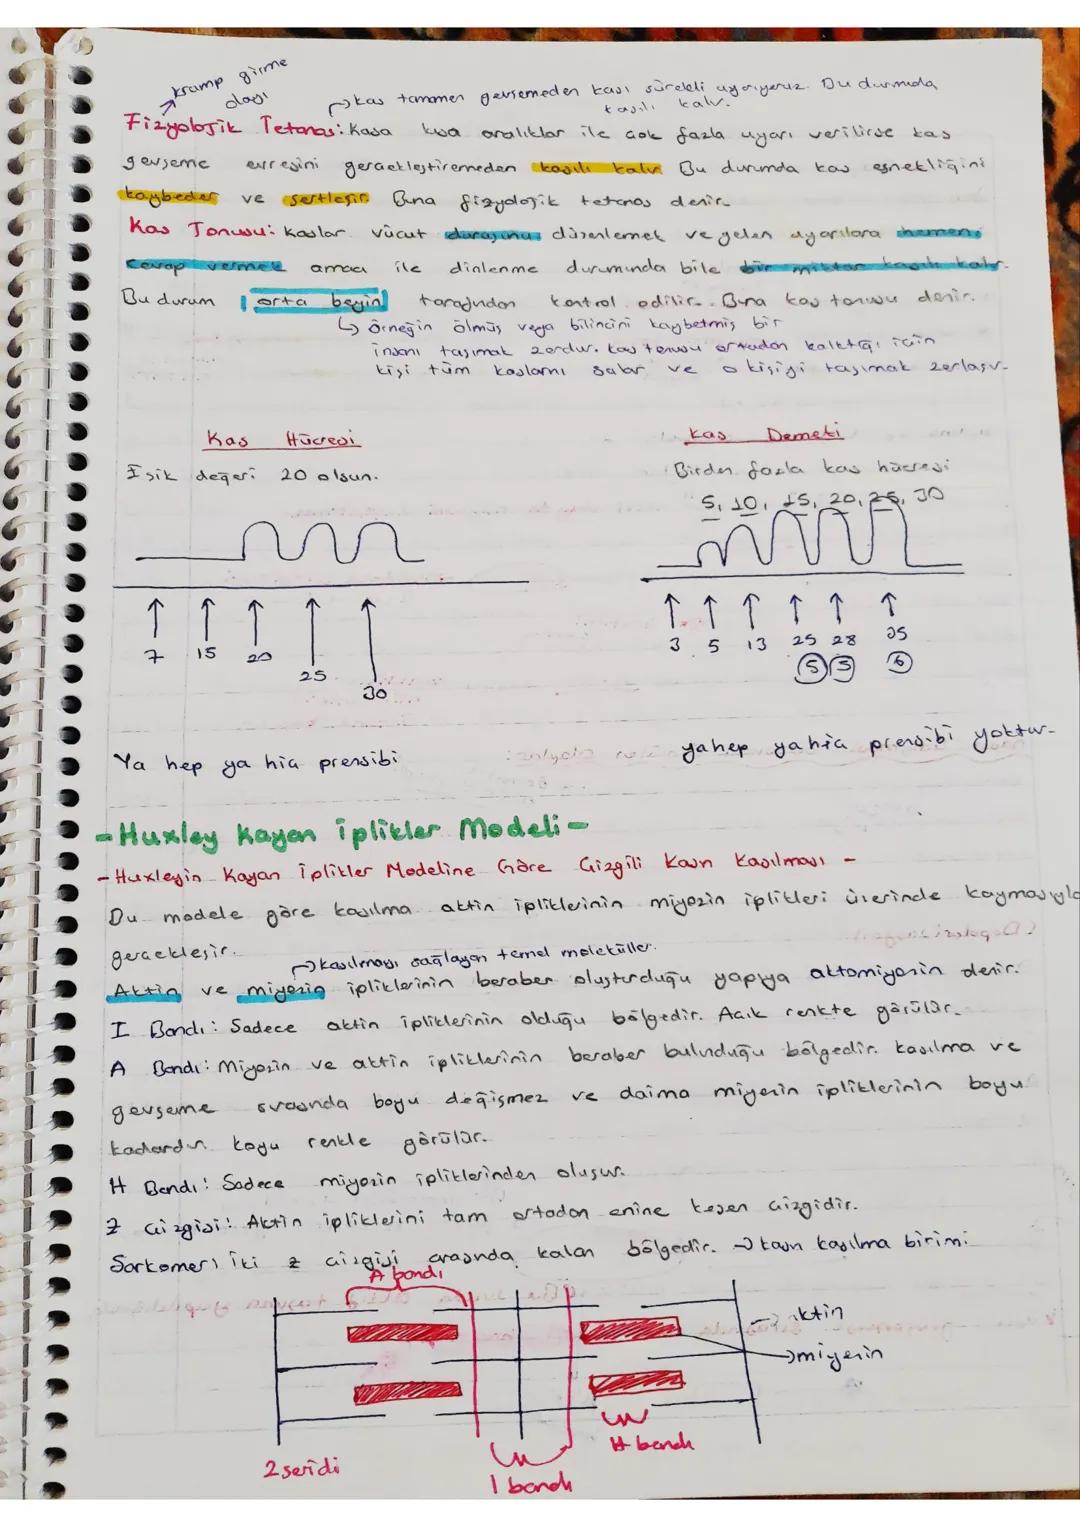 kramp girme
olayı
→ kas tamamen gevşemeden kası sürekli uyarıyoruz. Bu durumda
kasılı kalır.
Fizyolojik Tetanos: Kasa kısa aralıklar ile çok fazla uyarı verilirse kas
gevşeme evresini gerçekleştiremeden kasılı kalır. Bu durumda kas esnekliğini
kaybeder ve sertleşir. Buna fizyolojik tetanos denir.
Kas Tonusu: Kaslar vücut duruşunu düzenlemek ve gelen uyarılara hemen
cevap vermek amacı ile dinlenme durumunda bile bir miktar kasılı kalır.
Bu durum orta beyin tarafından kontrol edilir. Buna kas tonusu denir.
↳ Örneğin ölmüş veya bilincini kaybetmiş bir
insanı taşımak zordur. Kas tonusu ortadan kalktığı için
kişi tüm kaslarını salar ve o kişiyi taşımak zorlaşır.
Kas Hücresi
Eşik değeri 20 olsun.
7 15 20 25 30
Ya hep ya hiç prensibi
Kas Demeti
Birden fazla kas hücresi
5, 10, 15, 20, 25, 30
3 5 13 25 28 35
5 5 6
ya hep ya hiç prensibi yoktur.
- Huxley Kayan İplikler Modeli -
- Huxleyin Kayan İplikler Modeline Göre Çizgili Kasın Kasılması -
Bu modele göre kasılma aktin ipliklerinin miyozin iplikleri üzerinde kaymasıyla
gerçekleşir.
→ kasılmayı sağlayan temel moleküller.
Aktin ve miyozin ipliklerinin beraber oluşturduğu yapıya aktomiyosin denir.
I Bandı: Sadece aktin ipliklerinin olduğu bölgedir. Açık renkte görülür.
A Bandı: Miyozin ve aktin ipliklerinin beraber bulunduğu bölgedir. Kasılma ve
gevşeme sırasında boyu değişmez ve daima miyozin ipliklerinin boyu
kadardır. Koyu renkle görülür.
H Bandı: Sadece miyozin ipliklerinden oluşur.
Z çizgisi: Aktin ipliklerini tam ortadan enine kesen çizgidir.
Sarkomer: İki z çizgisi arasında kalan bölgedir. → kasın kasılma birimi
A bandı
aktin
→ miyozin
H bandı
Z şeridi
I bandı